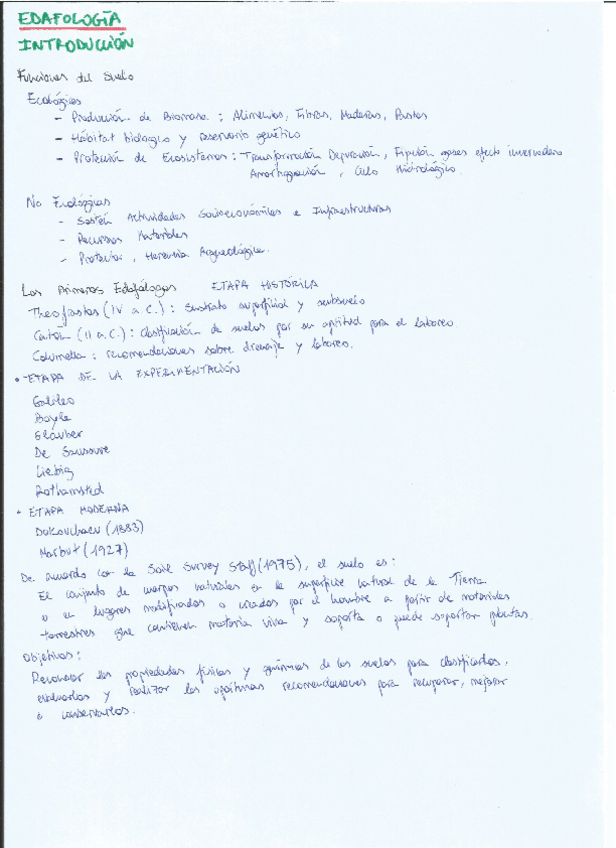 EDAFOLOGÍA
INTRODUCCIÓN
Funciones del Suelo
Ecológicas
- Producción de Biomasa : Alimentos, Fibras, Maderas, Pastos
- Hábitat biológico y reservorio genético
- Protección de Ecosistemas : Transformación Depuración, Fijación gases efecto invernadero
Amortiguación, Ciclo Hidrológico.
No Ecológicas
- Sostén Actividades Socioeconómicas e Infraestructuras
- Recursos Materiales
- Protector, Herencia Arqueológica.
Los Primeros Edafólogos ETAPA HISTÓRICA
Theofrastos (IV a.C.) : Sustrato superficial y subsuelo
Catón (II a.C.) : Clasificación de suelos por su aptitud para el laboreo.
Columella : recomendaciones sobre drenaje y laboreo.
• -ETAPA DE LA EXPERIMENTACIÓN
Galileo
Boyle
Glauber
De Saussure
Liebig
Rothamsted
· ETAPA MODERNA
Dokouchaev (1883)
Marbut (1927)
De acuerdo con la Soil Survey Staff (1975), el suelo es:
El conjunto de cuerpos naturales en la superficie natural de la Tierra
o en lugares modificados o creados por el hombre a partir de materiales
terrestres que contienen materia viva y soporta o puede soportar plantas.
Objetivos:
Reconocer las propiedades físicas y químicas de los suelos para clasificarlos,
evaluarlos y realizar las oportunas recomendaciones para recuperar, mejorar
o conservarlos.